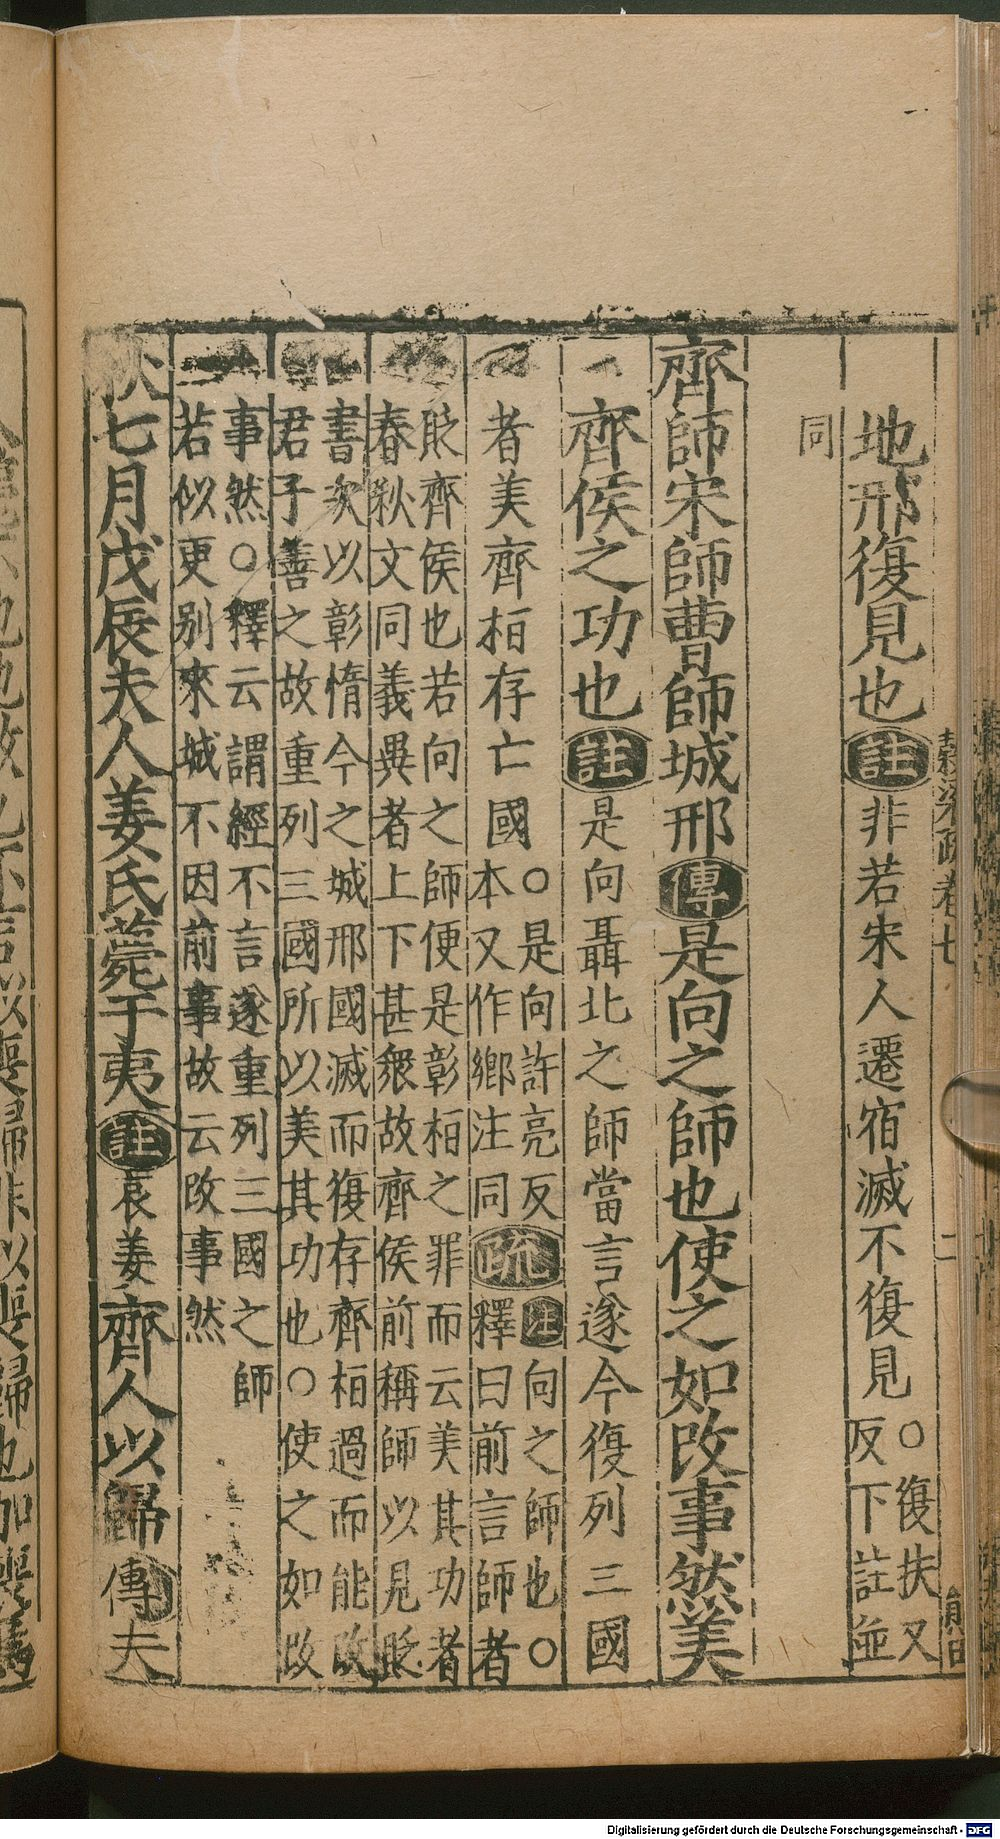 地邢復見也註非若宋人遷宿滅不復見○復扶又
反下註並
同
齊師宋師曹師城邢傳是向之師也使之如改事然美
齊侯之功也註是向聶北之師當言遂今復列三國
者美齊桓存亡國○是向許亮反
本又作鄉注同疏注向之師也○
釋曰前言師者
貶齊侯也若向之師便是彰桓之罪而云美其功者
春秋文同義異者上下甚衆故齊侯前稱師以見貶
書次以彰惰今之城邢國滅而復存齊桓過而能改
君子善之故重列三國所以美其功也○使之如改
事然○釋云謂經不言遂重列三國之師
若似更别來城不因前事故云改事然
秋七月戊辰夫人姜氏薨于夷註哀姜齊人以歸傳夫
穀梁疏卷七
二
Digitalisierung gefördert durch die Deutsche Forschungsgemeinschaft - DFG